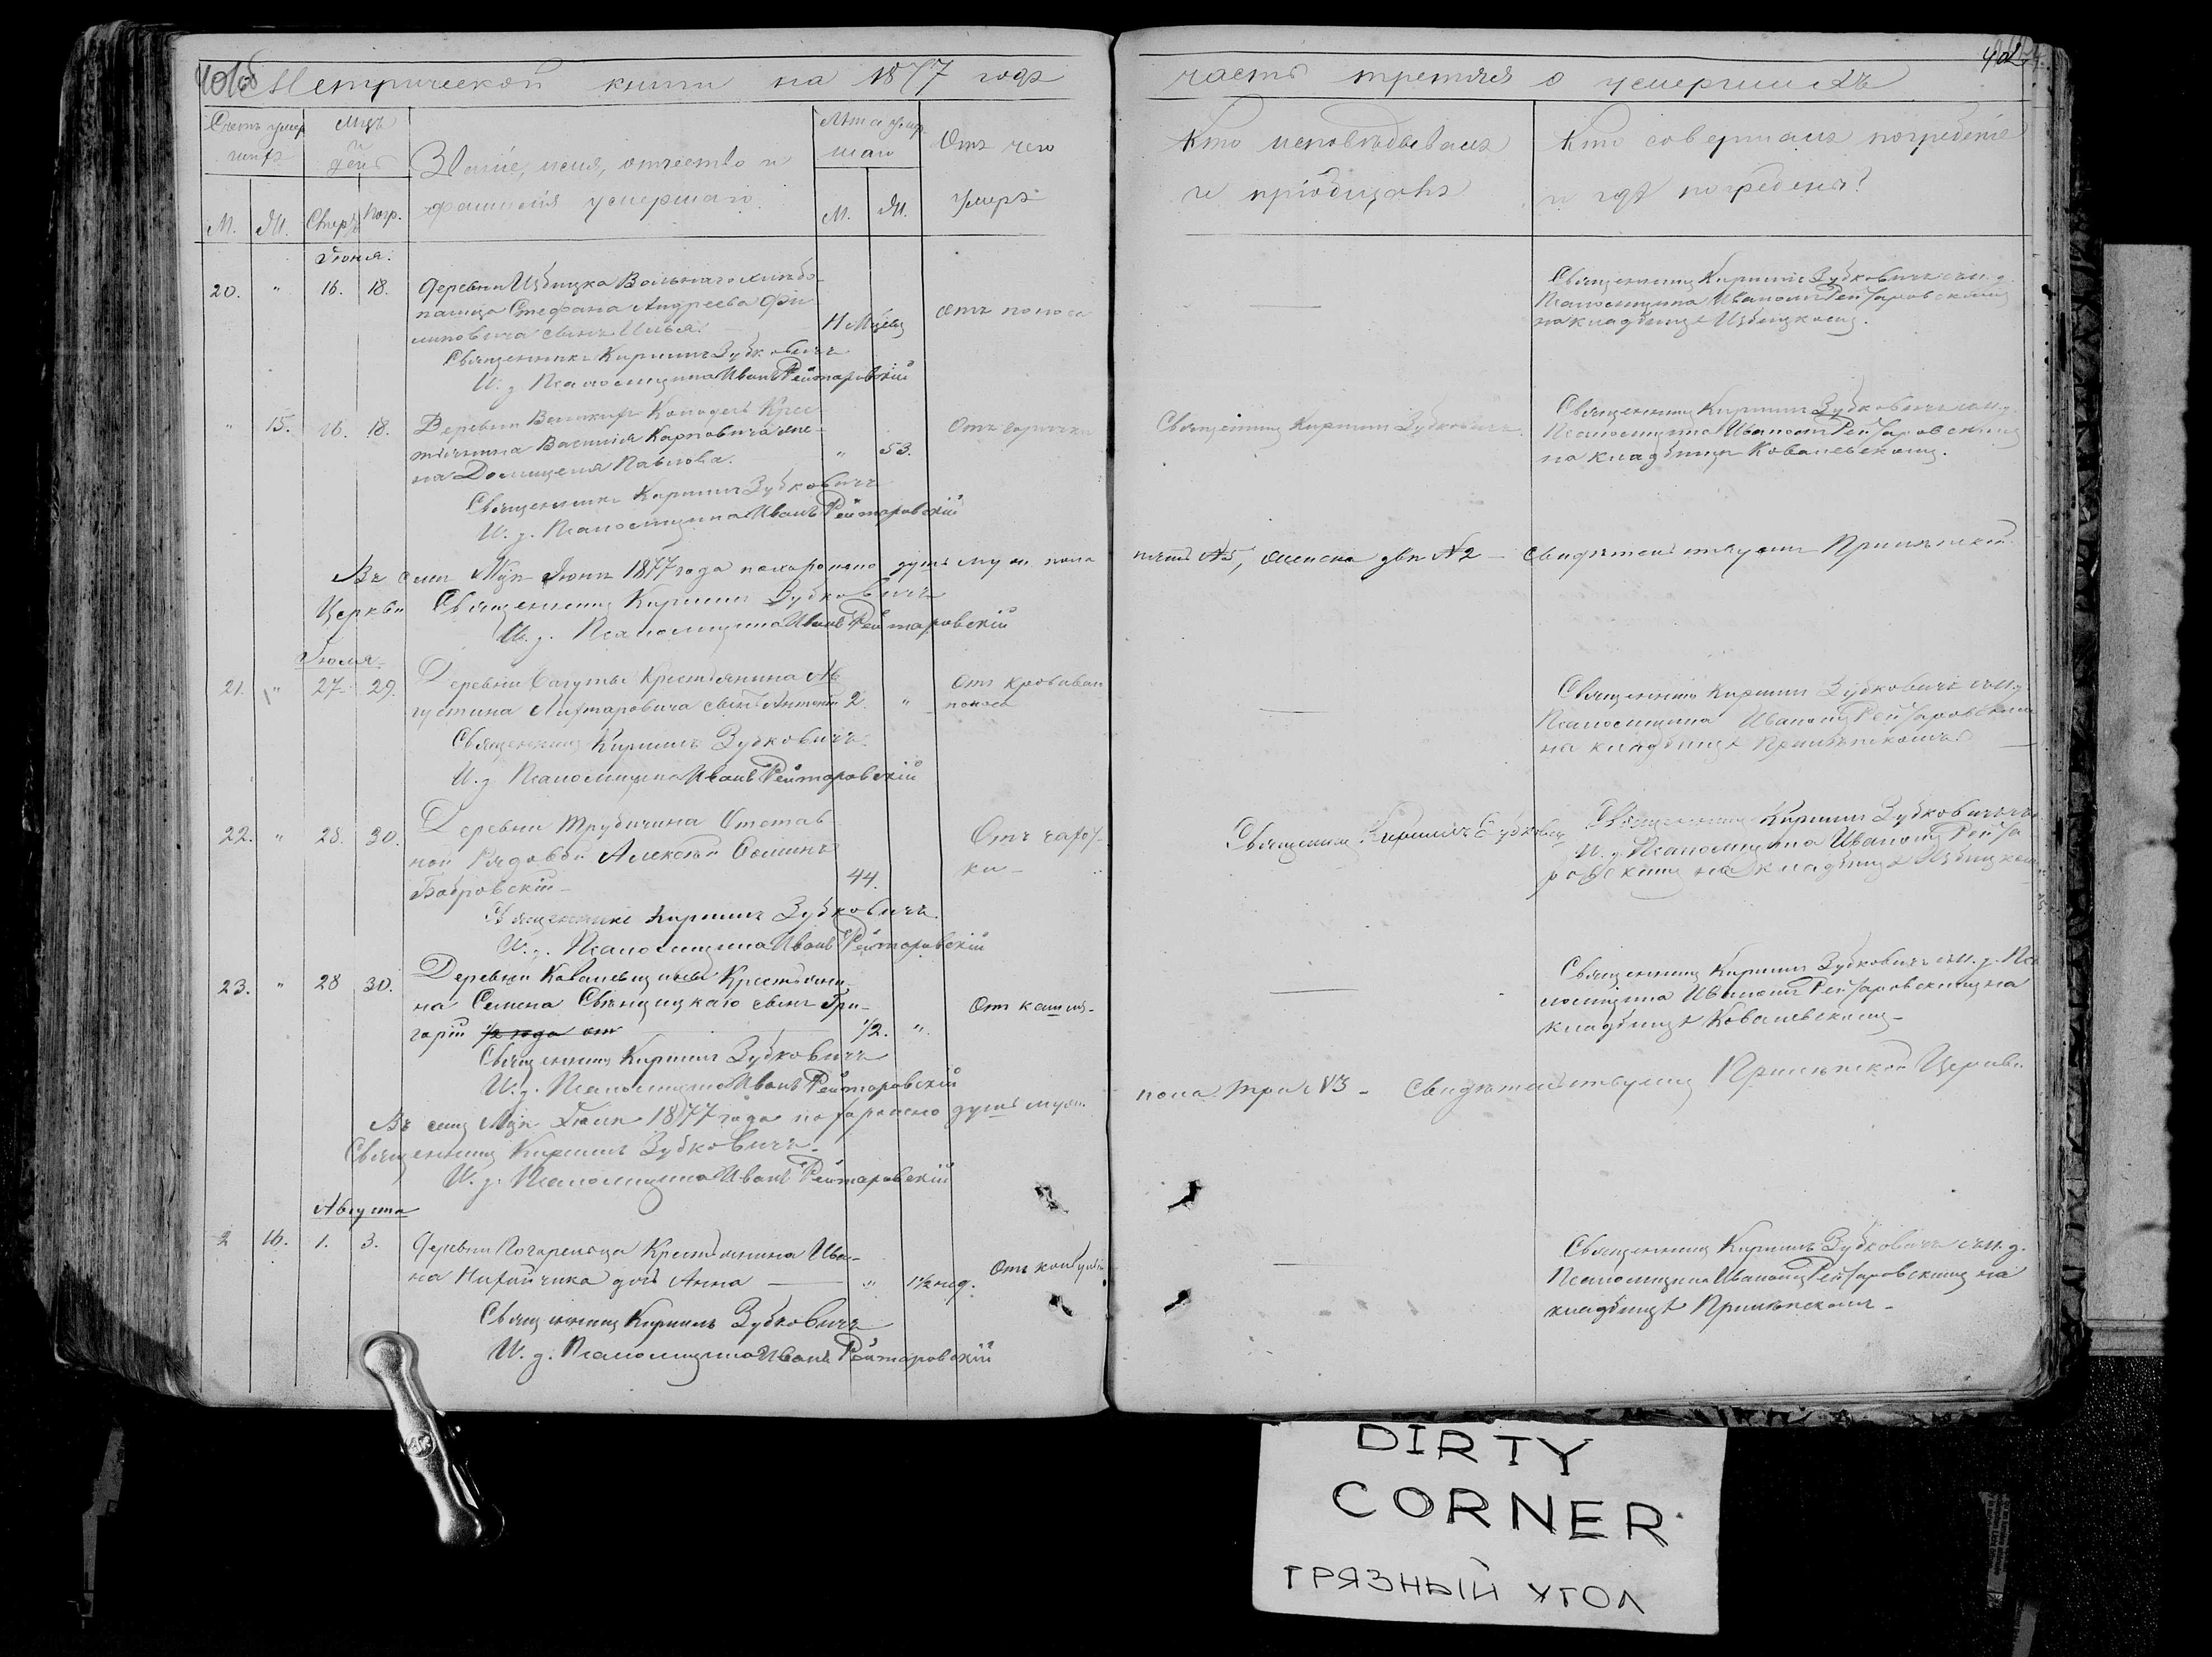 401об Метрической книги на 1877 годъ
часть третія о умершихъ
402
Счетъ умер
шихъ
Мцъ
и
день
Званіе, имя, отчество и
фамилія умершаго.
Лѣта умер
шаго
Отъ чего
умеръ
М. Ж. Смерт. Погр.
М. Ж.
Кто исповѣдывалъ
и пріобщалъ
Кто совершалъ погребеніе
и гдѣ погребенъ?
Іюня.
20. " 16. 18. Деревни Избицка Вольнаго хлѣбо
пашца Стефана Андреева Фи
липовича сынъ Илья.
11 Мѣсяц
Отъ поноса
Священникъ Кириллъ Зубковичъ
И. д. Псаломщика Иванъ Рейтаровскій
Священникъ Кириллъ Зубковичъ съ и. д.
Псаломщика Иваномъ Рейтаровскимъ
на кладбищѣ Избицкомъ.
" 15. 16. 18. Деревни Великихъ Колодезь Крес
тьянина Василія Карповича же-
на Домицеля Павлова.
" 53.
Отъ горячки
Священникъ Кириллъ Зубковичъ
И. д. Псаломщика Иванъ Рейтаровскій
Священникъ Кириллъ Зубковичъ.
Священникъ Кириллъ Зубковичъ съ и. д.
Псаломщика Иваномъ Рейтаровскимъ
на кладбищѣ Ковалевскомъ.
Въ семъ Мцѣ Іюнѣ 1877 года похоронено душъ муж. пола
пять №5, женска двѣ №2 – Свидѣтельствуемъ Прилѣпской
Церкви Священникъ Кириллъ Зубковичъ
И. д. Псаломщика Иванъ Рейтаровскій
Іюля
21. " 27 29. Деревни Сагуты Крестьянина Ав
густина Лихтаровича сынъ Антоній 2. "
Отъ кроваваго
поноса
Священникъ Кириллъ Зубковичъ.
И. д. Псаломщика Иванъ Рейтаровскій
Священникъ Кириллъ Зубковичъ съ и. д.
Псаломщика Иваномъ Рейтаровскимъ
на кладбищѣ Прилѣпскомъ
22. " 28. 30. Деревни Трубичина Отстав
ной Рядовой Алексѣй Ѳоминъ
Бобровскій
44.
Отъ чахот-
ки
Священникъ Кириллъ Зубковичъ.
И. д. Псаломщика Иванъ Рейтаровскій
Священникъ Кириллъ Зубковичъ
Священникъ Кириллъ Зубковичъ съ
И. д. Псаломщика Иваномъ Рейта
ровскимъ на кладбищѣ Избицкомъ
23. " 28 30. Деревни Ковалевщины Крестьяни
на Семена Свѣнцицкаго сынъ Гри-
горій ½ года от 1/2. "
Отъ кашля
Священникъ Кириллъ Зубковичъ
И. д. Псаломщика Иванъ Рейтаровскій
Священникъ Кириллъ Зубковичъ съ и. д. Пса
ломщика Иваномъ Рейтаровскимъ на
кладбищѣ Ковалевскомъ
Въ семъ Мцѣ Іюлѣ 1877 года похоронено душъ муж.
пола три №3 – Свидѣтельствуемъ Прилѣпской Церкви
Священникъ Кириллъ Зубковичъ
И. д. Псаломщика Иванъ Рейтаровскій
Августа
16. 1. 3. Деревни Погорельца Крестьянина Ива-
на дочь Анна — " 1½ нед.
Священникъ Кириллъ Зубковичъ
И. д. Псаломщика Иванъ Рейтаровскій
Священникъ Кириллъ Зубковичъ съ и. д.
Псаломщика Иваномъ Рейтаровскимъ на
кладбищѣ Прилѣпскомъ
DIRTY
CORNER
ГРЯЗНЫЙ УГОЛ